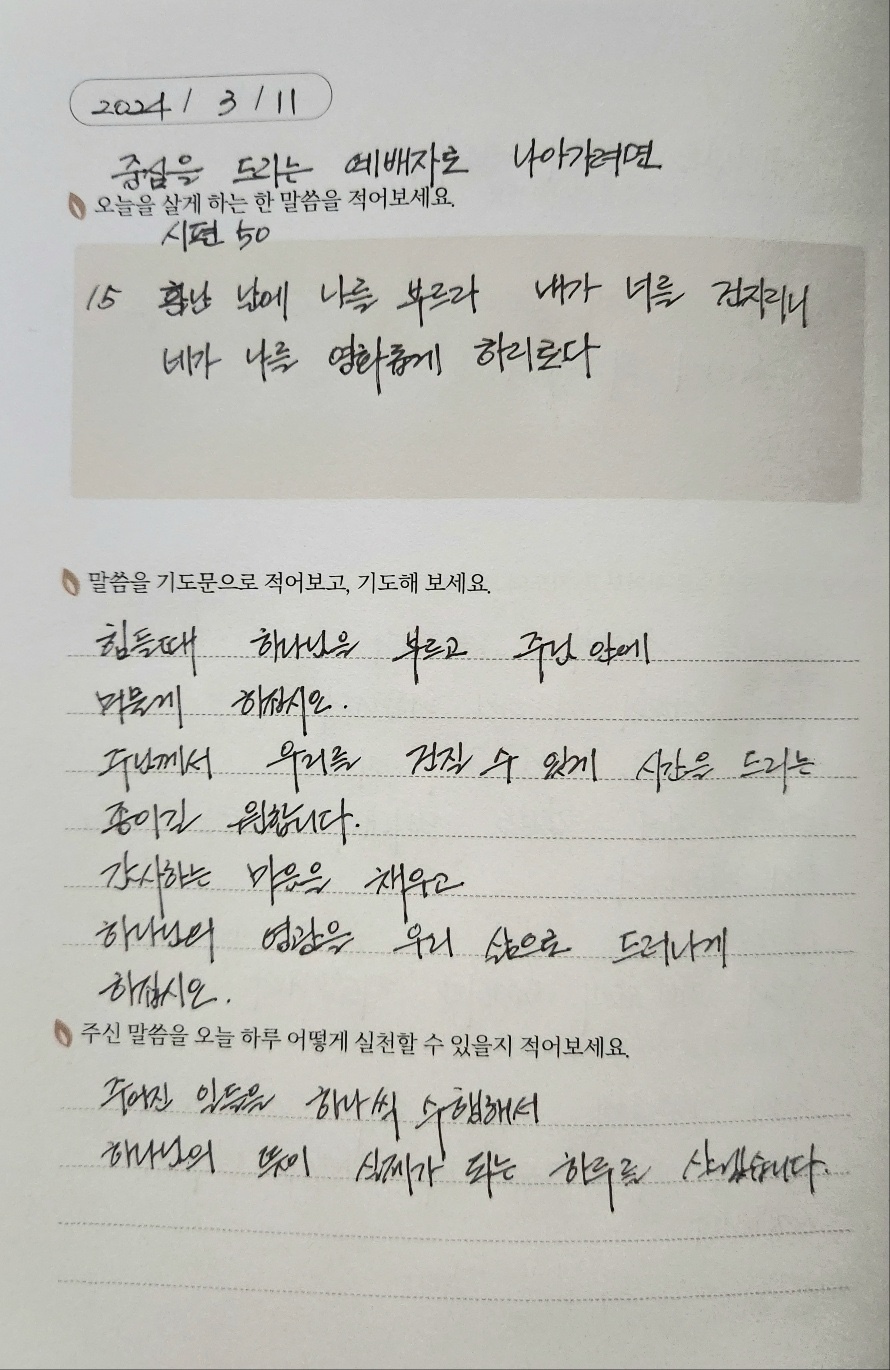 2024 / 3 / 11
중심을 드리는 예배자로 나아가려면
오늘을 살게 하는 한 말씀을 적어보세요.
시편 50
15 환난 날에 나를 부르라 내가 너를 건지리니
네가 나를 영화롭게 하리로다
말씀을 기도문으로 적어보고, 기도해 보세요.
힘들때 하나님을 부르고 주님 안에
머물게 하십시오.
주님께서 우리를 건질 수 있게 시간을 드리는
종이길 원합니다.
감사하는 마음을 채우고
하나님의 영광을 우리 삶으로 드러나게
하십시오.
주신 말씀을 오늘 하루 어떻게 실천할 수 있을지 적어보세요.
주어진 일들을 하나씩 수행해서
하나님의 뜻이 실제가 되는 하루를 살겠습니다.